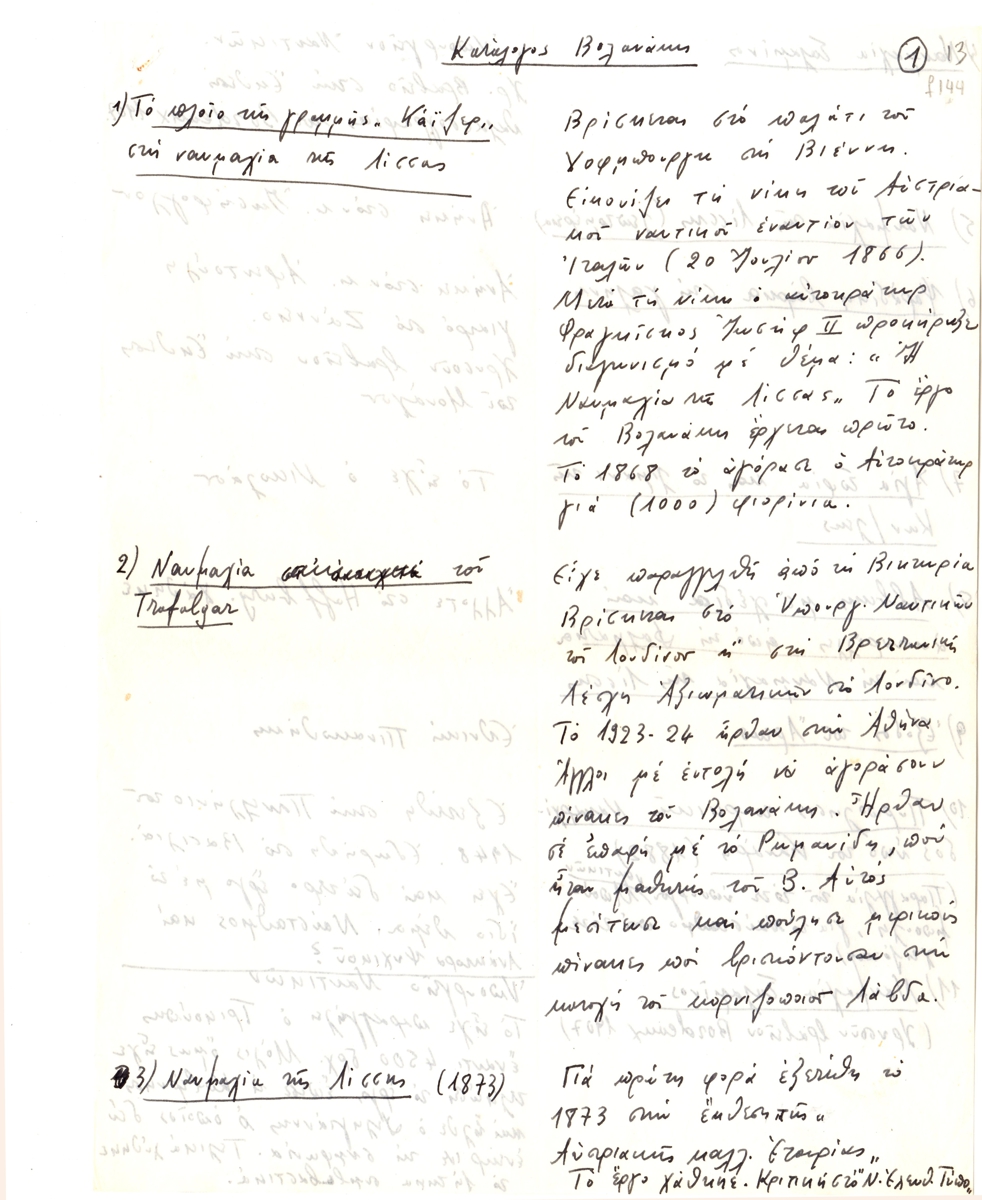 Κατάλογος Βολανάκη
1 13
f144
1) Τό πλοῖο τῆς γραμμῆς „Κάϊζερ„
στή ναυμαχία τῆς Λίσσας
Βρίσκεται στό παλάτι τοῦ
Χόφμπουργκ στή Βιέννη.
Εἰκονίζει τή νίκη τοῦ Αὐστρια-
κοῦ ναυτικοῦ ἐναντίον τῶν
Ἰταλῶν (20 Ἰουλίου 1866).
Μετά τή νίκη ὁ αὐτοκράτωρ
Φραγκίσκος Ἰωσήφ II προκήρυξε
διαγωνισμό μέ θέμα: „Ἡ
Ναυμαχία τῆς Λίσσας„ Τό ἔργο
τοῦ Βολανάκη ἔρχεται πρῶτο.
Τό 1868 τό ἀγόρασε ὁ Αὐτοκράτωρ
γιά (1000) φιορίνια.
2) Ναυμαχία τοῦ
Trafalgar
Εἶχε παραγγελθῆ ἀπό τή Βικτωρία
Βρίσκεται στό Ὑπουργ. Ναυτικῶν
τοῦ Λονδίνου ἤ στή Βρεττανική
Λέσχη Ἀξιωματικῶν στό Λονδίνο.
Τό 1923-24 ἦρθαν στήν Ἀθήνα
Ἄγγλοι μέ ἐντολή νά ἀγοράσουν
πίνακες τοῦ Βολανάκη. Ἦρθαν
σέ ἐπαφή μέ τό Ρωμανίδη, πού
ἦταν μαθητής τοῦ Β. Αὐτός
μεσίτευσε καί πούλησε μερικούς
πίνακες πού βρισκόντουσαν στήν
κατοχή τοῦ κορνιζοποιοῦ Λάβδα.
3) Ναυμαχία τῆς Λίσσης (1873)
Γιά πρώτη φορά ἐξετέθη τό
1873 στήν ἔκθεση τῆς „
Αὐστριακῆς καλλ. Ἑταιρίας„
Τό ἔργο χάθηκε. Κριτική στό "Ν. Ἐλευθ. Τύπο„